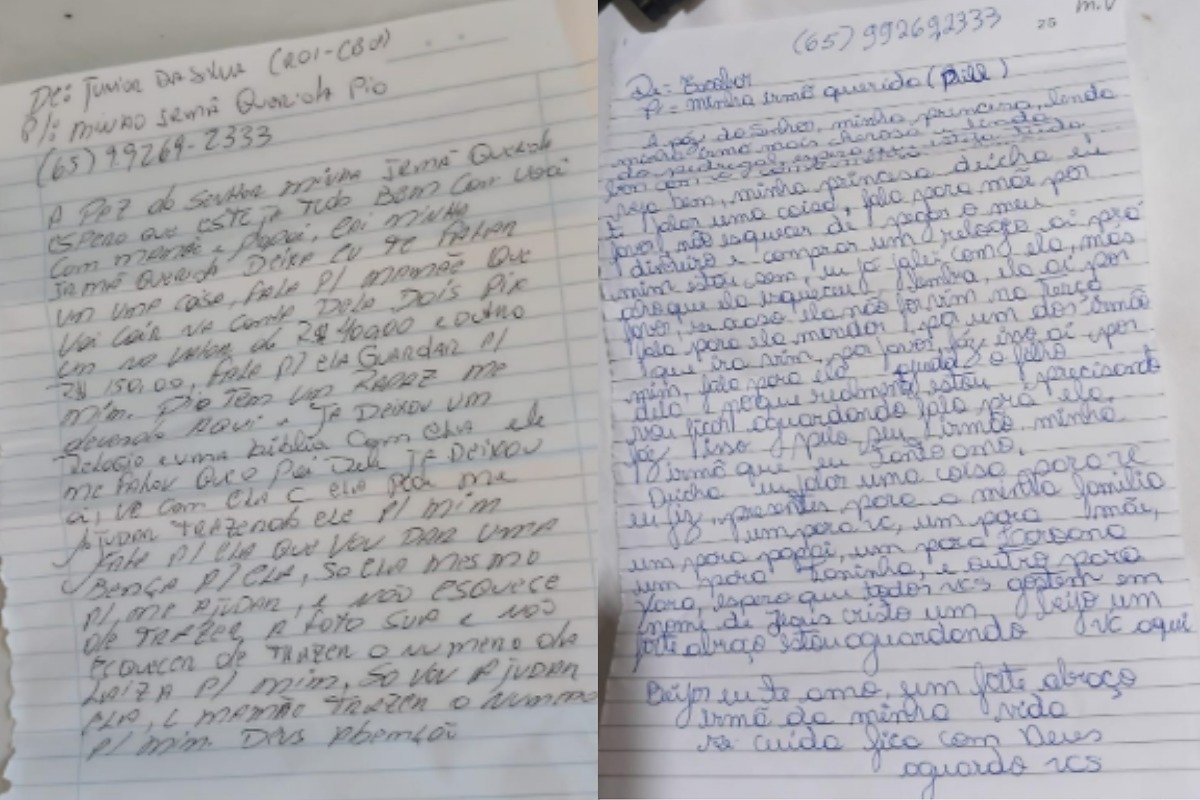 De: JUNIOR DA SILVA (RO1-CB01)
P/: MINHA IRMÃ QUERIDA PIO
(65) 99269-2333
A PAZ do SENHOR MINHA IRMÃ QUERIDA
ESPERO QUE ESTEJA TUDO BEM COM VOCÊ
COM MAMÃE e PAPAI, MINHA
IRMÃ QUERIDA DEIXA EU TE FALAR
UMA COISA, FALA P/ MAMÃE QUE
VAI CAIR NA CONTA DELA DOIS PIX
UM NO VALOR DE R$ 400,00 e OUTRO
R$ 150,00, FALA P/ ELA GUARDAR P/
MIM. PIO TEM UM RAPAZ ME
devendo AQUI e JA DEIXOU UM
Relogio e UMA BIBLIA COM ELA ele
me FALOU QUE O PAI Dele JA DEIXOU
ai, VE COM ELA C ELA PODE me
AJUDAR TRAZENDO ELE P/ MIM
FALA P/ ELA QUE VOU DAR UMA
BENÇA P/ ELA, SO ELA MESMO
P/ ME AJUDAR, e NÃO ESQUECE
DE TRAZER A FOTO SUA e NÃO
ESQUECER DE TRAZER O NUMERO da
LUIZA P/ MIM, SO VOU AJUDAR
ELA, MAMÃE TRAZER O NUMERO
P/ MIM. DEUS ABENÇOÕ
(65) 992692333
25
M.V
De = Escobar
P = Minha irmã querida
A paz do Senhor, minha princesa, linda
minha irmã mais
espero
bem com
veja bem, minha princesa deicha eu
t falar uma coisa, fala para mãe por
favor não esquecer de pegar o meu
dinheiro e comprar um relogio ai pra
mim eu já falei com ela, mas
acho que ela esqueceu lembra ela ai por
favor, se caso ela não for vim na terça
fala para ela mandar por um dos irmão
que ira vim, por favor faz isso ai por
mim, fala para ela ajudar o filho
dela é porque realmente estou precisando
vou ficar aguardando fala pra ela
faz isso pelo seu irmão minha
irmã que eu tanto amo.
Deicha eu falar uma coisa para vc
eu fiz presentes para a minha familia
um para vc, um para mãe,
um para papai, um para
um para Toninha, e outro para
Yara, espero que todos vcs gostem em
nome de Jesus cristo um beijo um
forte abraço estou aguardando vc aqui
Beijos eu te amo, um forte abraço
irmã da minha vida
se cuida fica com Deus
aguardo vcs